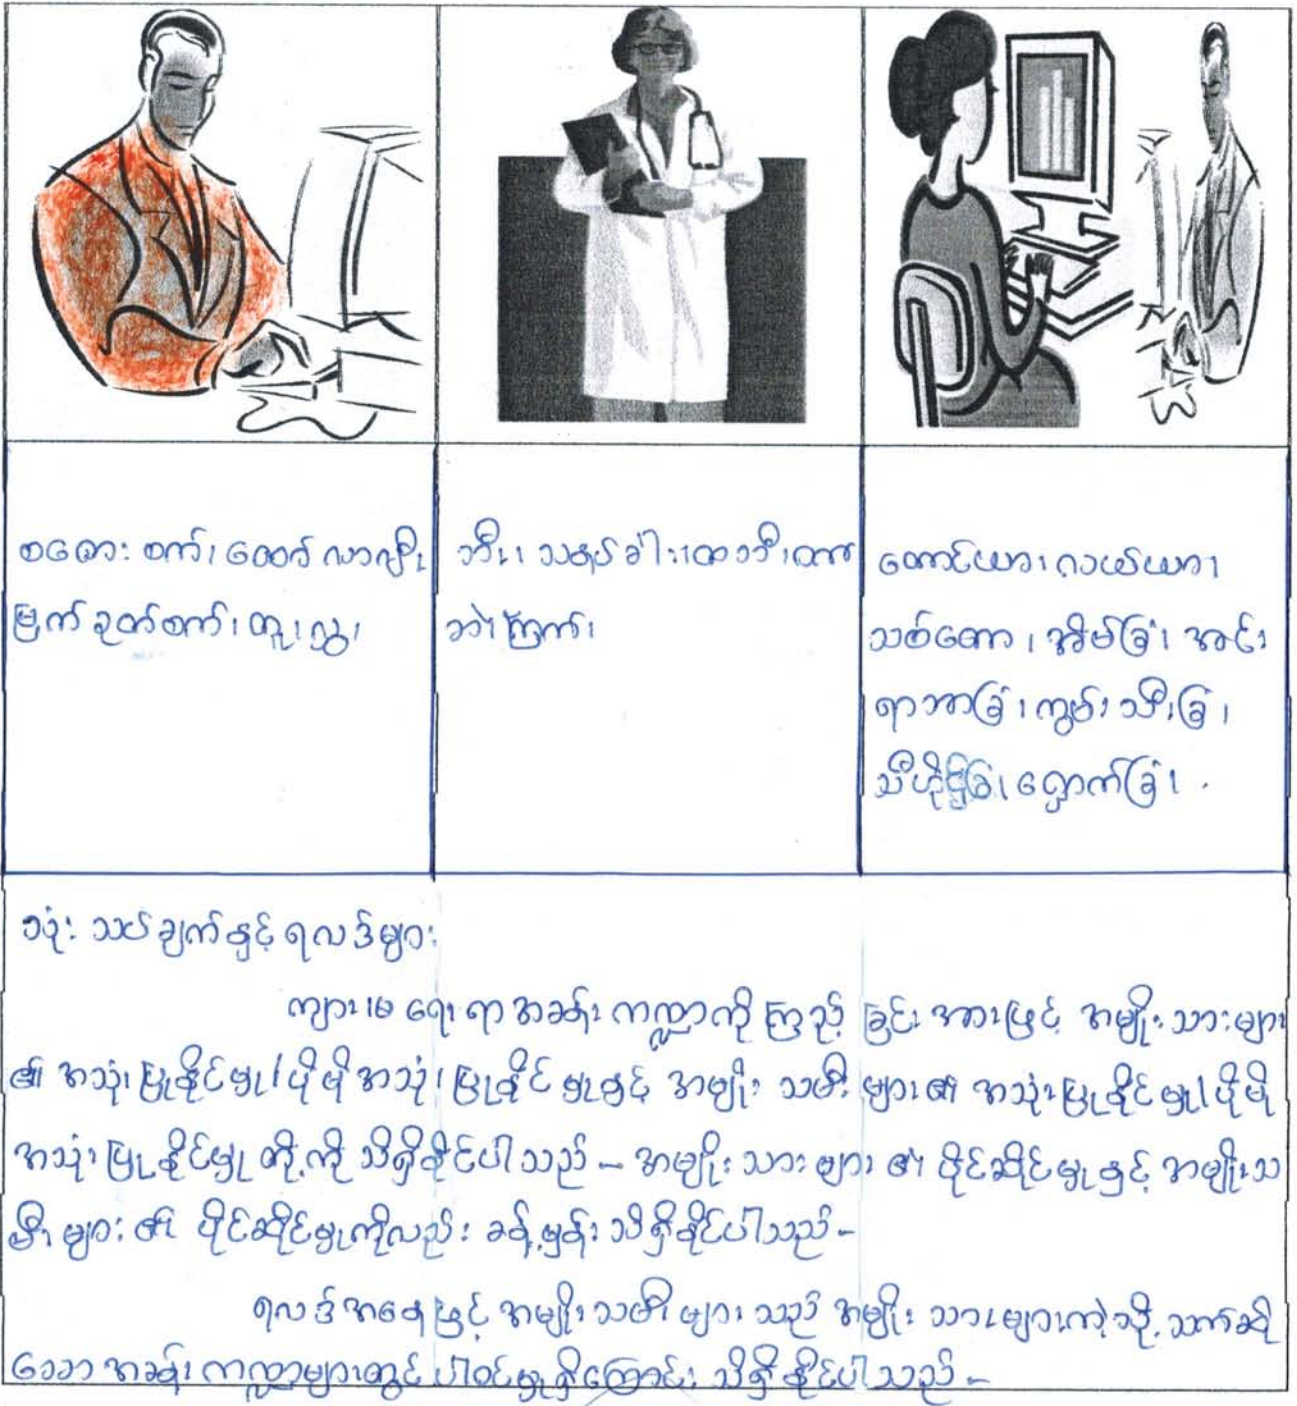 စဓား စက်၊ ထော်လာဂျီ၊
မြက်ခုတ်စက်၊ တူ၊ လွှ၊
ဘီး၊ သနပ်ခါး၊ ထဘီ၊
ဘဲ၊ ကြက်၊
တောင်ယာ၊ လယ်ယာ၊
သစ်တော၊ အိမ်ခြံ၊ အင်း
ရာဘာခြံ၊ ကွမ်းသီးခြံ၊
သီဟိုဠ်ခြံ၊ ရှောက်ခြံ၊
သုံး သပ်ချက်နှင့် ရလဒ်များ
ကျား၊မ ရေးရာ အခန်း ကဏ္ဍကို ကြည့် ခြင်း အားဖြင့် အမျိုး သားများ
၏ အသုံး ပြုနိုင်မှု/ပိုမို အသုံး ပြုနိုင် မှုနှင့် အမျိုး သမီး များ၏ အသုံး ပြုနိုင်မှု/ပိုမို
အသုံး ပြုနိုင်မှု တို့ကို သိရှိနိုင်ပါသည် – အမျိုး သား များ ၏ ပိုင်ဆိုင်မှု နှင့် အမျိုးသ
မီး များ ၏ ပိုင်ဆိုင်မှုကိုလည်း ခန့်မှန်း သိရှိနိုင်ပါသည် –
ရလဒ် အနေဖြင့် အမျိုး သမီး များ သည် အမျိုး သားများကဲ့သို့ သက်ဆိုင်
သော အခန်း ကဏ္ဍများတွင် ပါဝင်မှုရှိကြောင်း သိရှိနိုင်ပါသည် –